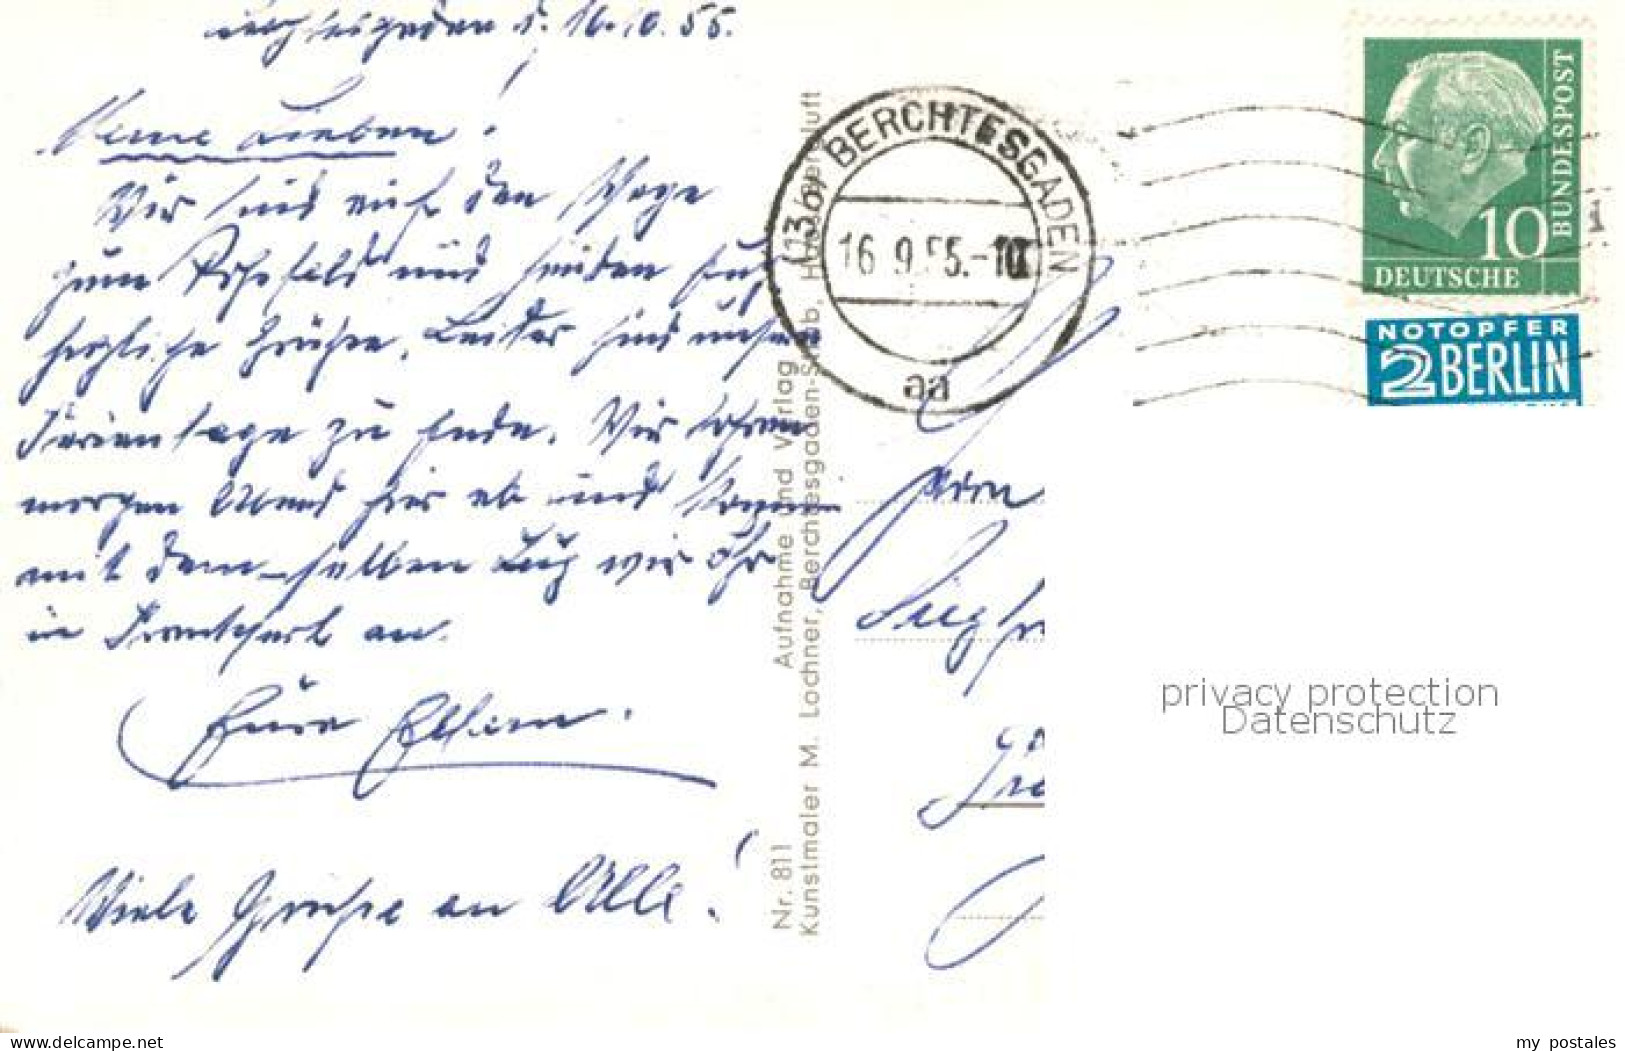 Berchtesgaden d. 16.10.55.
Meine Lieben!
Wir sind auf dem Wege
zum Roßfeld und senden Euch
herzliche Grüße. Leider sind unsere
Ferientage zu Ende. Wir fahren
morgen Abend hier ab und kommen
mit dem-selben Zug wie Ihr
in Frankfurt an.
Eure Eltern.
Viele Grüße an Alle!
Nr. 811 Aufnahme und Verlag
Kunstmaler M. Lochner, Berchtesgaden-Stroub, Haus
(13b) BERCHTESGADEN
16 9.55.-10
aa
BUNDESPOST
10
DEUTSCHE
NOTOPFER
2 BERLIN
privacy protection
Datenschutz
www.delcampe.net
my_postales